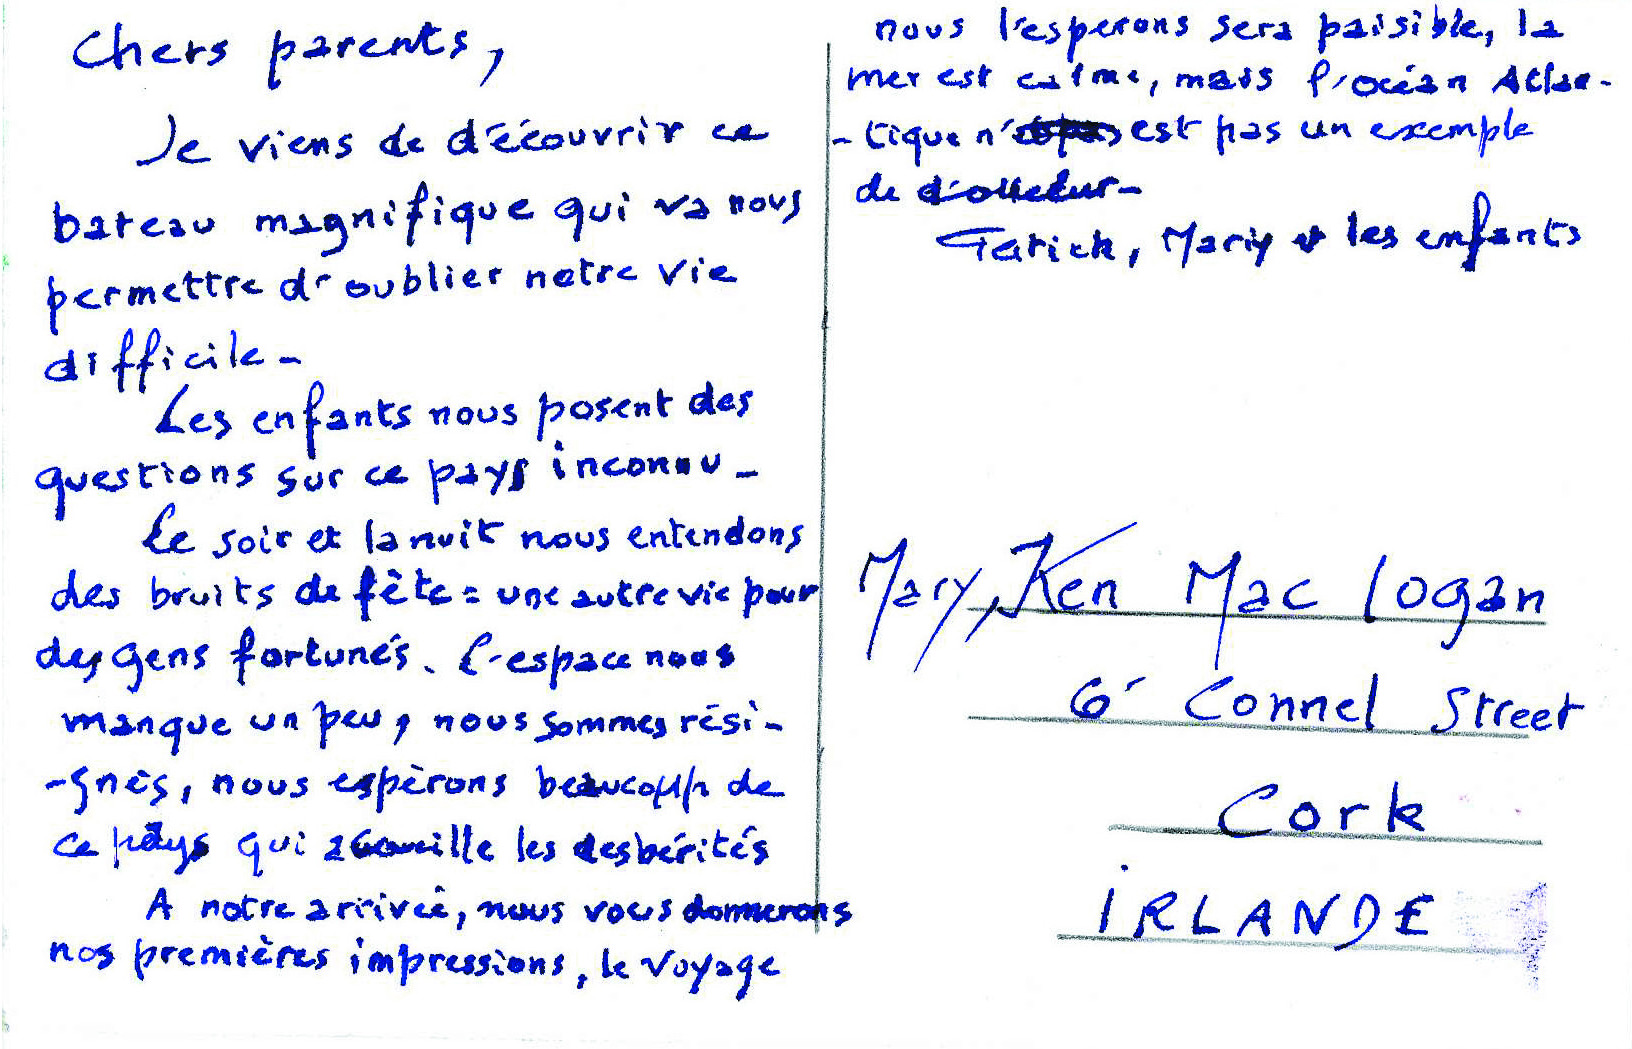 Chers parents,
Je viens de découvrir ce
bateau magnifique qui va nous
permettre d'oublier notre vie
difficile -
Les enfants nous posent des
questions sur ce pays inconnu -
Le soir et la nuit nous entendons
des bruits de fête = une autre vie pour
des gens fortunés. L'espace nous
manque un peu, nous sommes rési-
-gnés, nous espèrons beaucoup de
ce pays qui les desbérités
A notre arrivée, nous vous donnerons
nos premières impressions, le voyage
nous l'esperons sera paisible, la
mer est calme, mais l'océan Atlan-
-tique n' est pas un exemple
de
Patrick, Mary et les enfants
Mary, Ken Mac Logan
6' Connel Street
Cork
IRLANDE